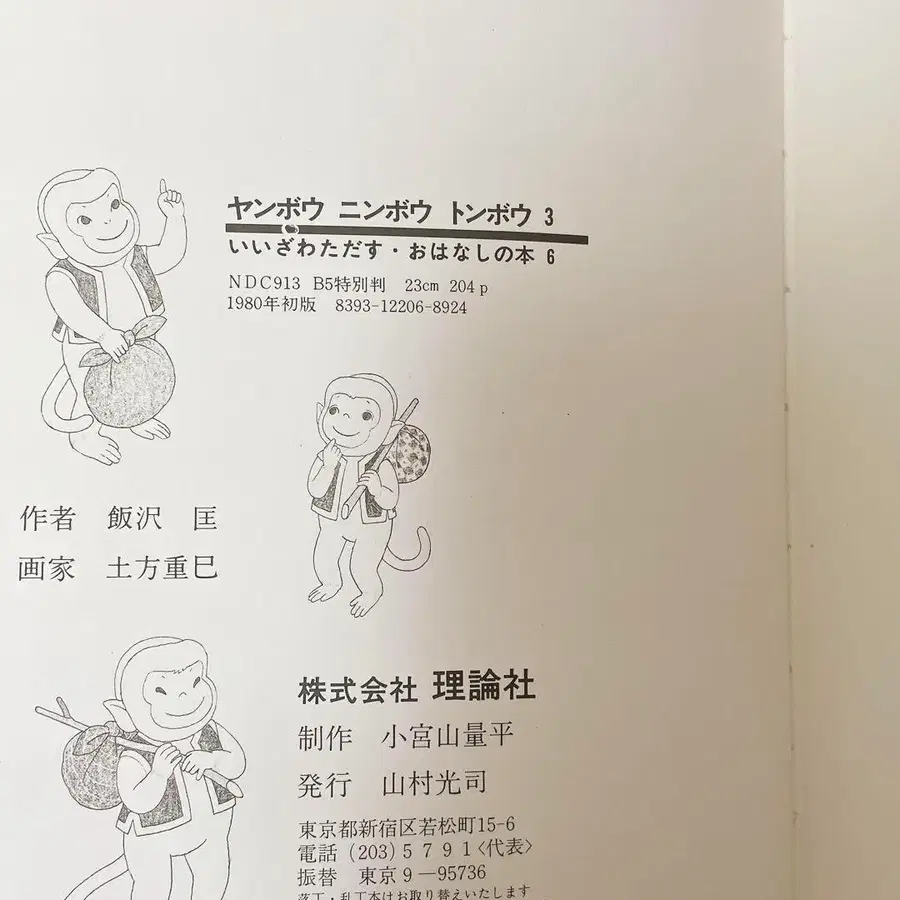 ヤンボウ ニンボウ トンボウ 3
いいざわただす・おはなしの本 6
NDC913 B5特別判 23cm 204p
1980年初版 8393-12206-8924
作者 飯沢 匡
画家 土方重巳
株式会社 理論社
制作 小宮山量平
発行 山村光司
東京都新宿区若松町15-6
電話 (203) 5791〈代表〉
振替 東京9-95736
落丁・乱丁本はお取り替えいたします